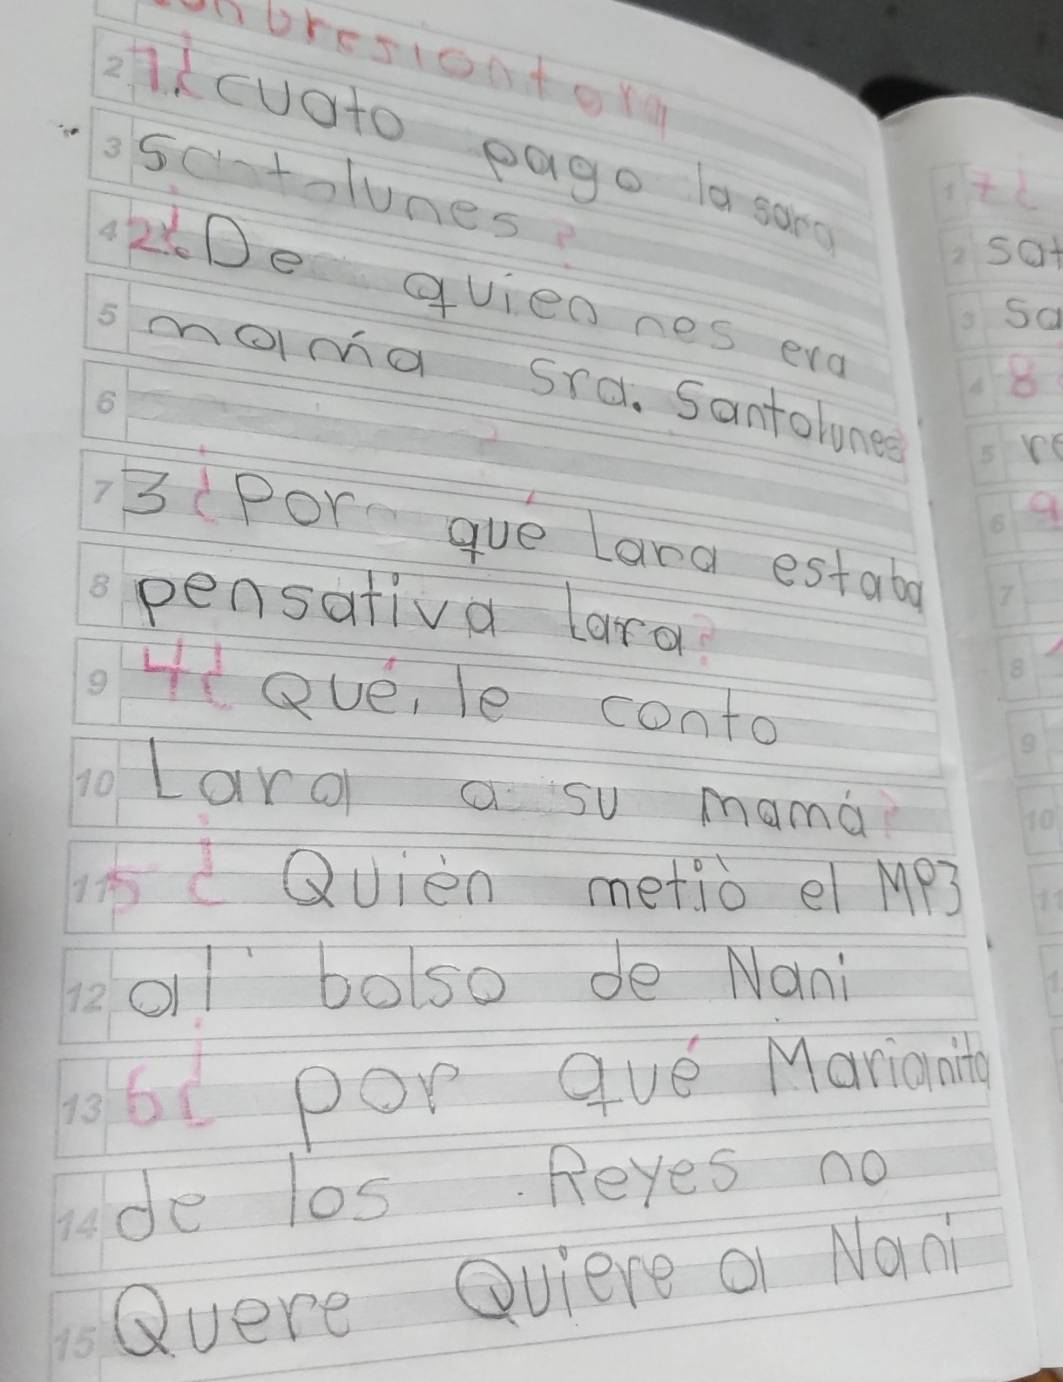 1¿cuato pago la sara
santolunes?
2¿De quien nes era
mamá Sra. Santolunes
?
3¿Por qué Lara estaba
pensativa Lara?
4¿Qué, le conto
Lara a su mamá?
5¿Quién metió el MP3
al bolso de Nani
6¿por qué Marianita
de los Reyes no
Quere Quiere a Nani
7¿
sat
sa
8
re
9